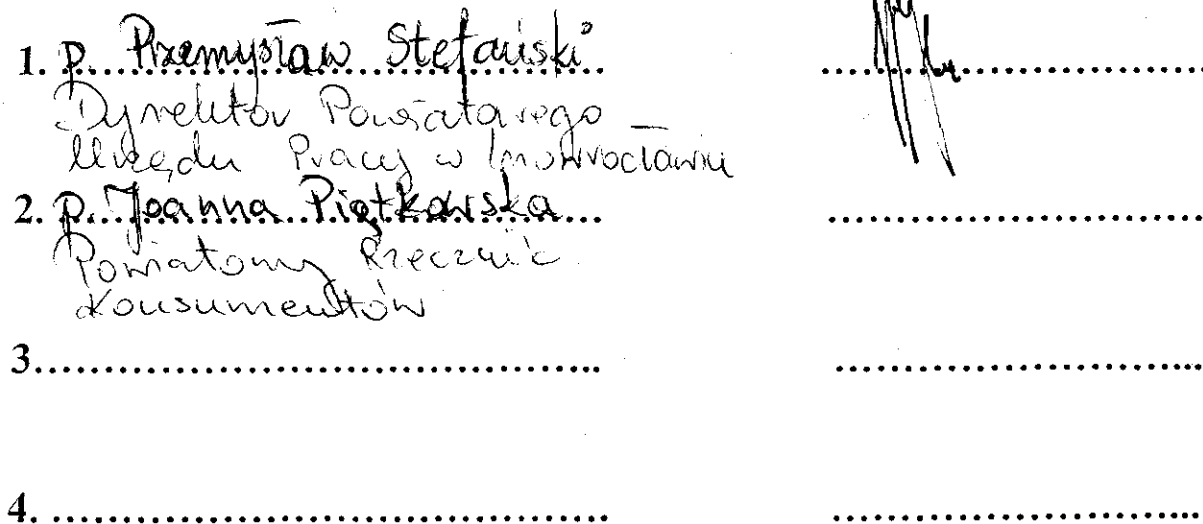 1. p. Przemysław Stefański
Dyrektor Powiatowego
Urzędu Pracy w Inowrocławiu
2. p. Joanna Piątkowska
Powiatowy Rzecznik
Konsumentów
3.
4.